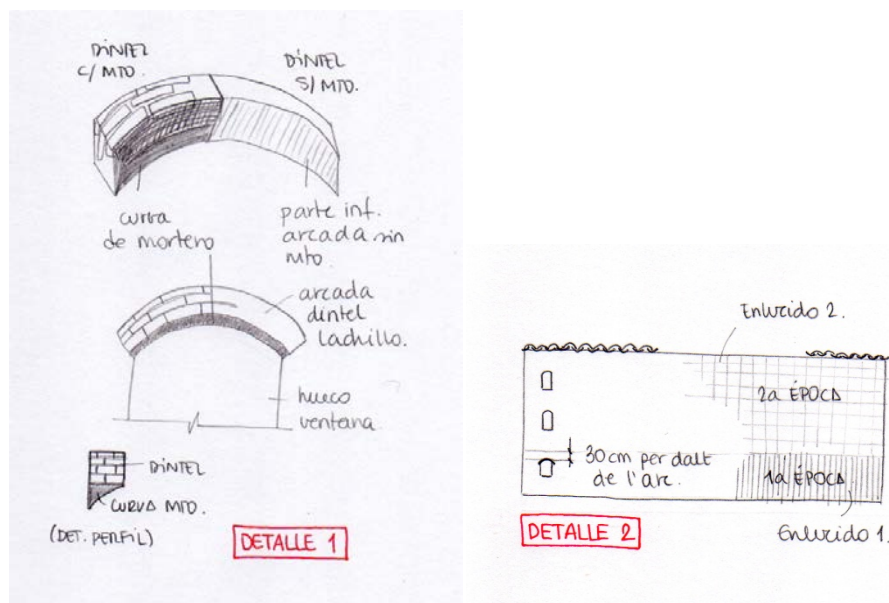 DINTEL
C/ MTO.
DINTEL
S/ MTO.
curva
de mortero
parte inf.
arcada sin
mto.
arcada
dintel
ladrillo.
hueco
ventana.
DINTEL
CURVA MTO.
(DET. PERFIL)
DETALLE 1
Enlucido 2.
2a ÉPOCA
30cm per dalt
de l'arc.
1a ÉPOCA
DETALLE 2
Enlucido 1.